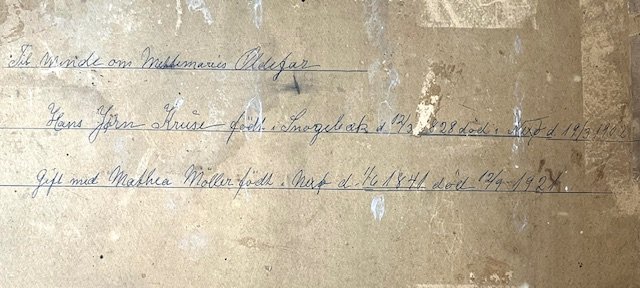 Til Minde om Mettemaries Oldefar
Hans Jörn Kruse født i Snogebæk d 12/2 1828 död i Nexø d 19/3 1902
Gift med Mathea Möller født i Nexø d. 1/6 1841 död 12/9-192